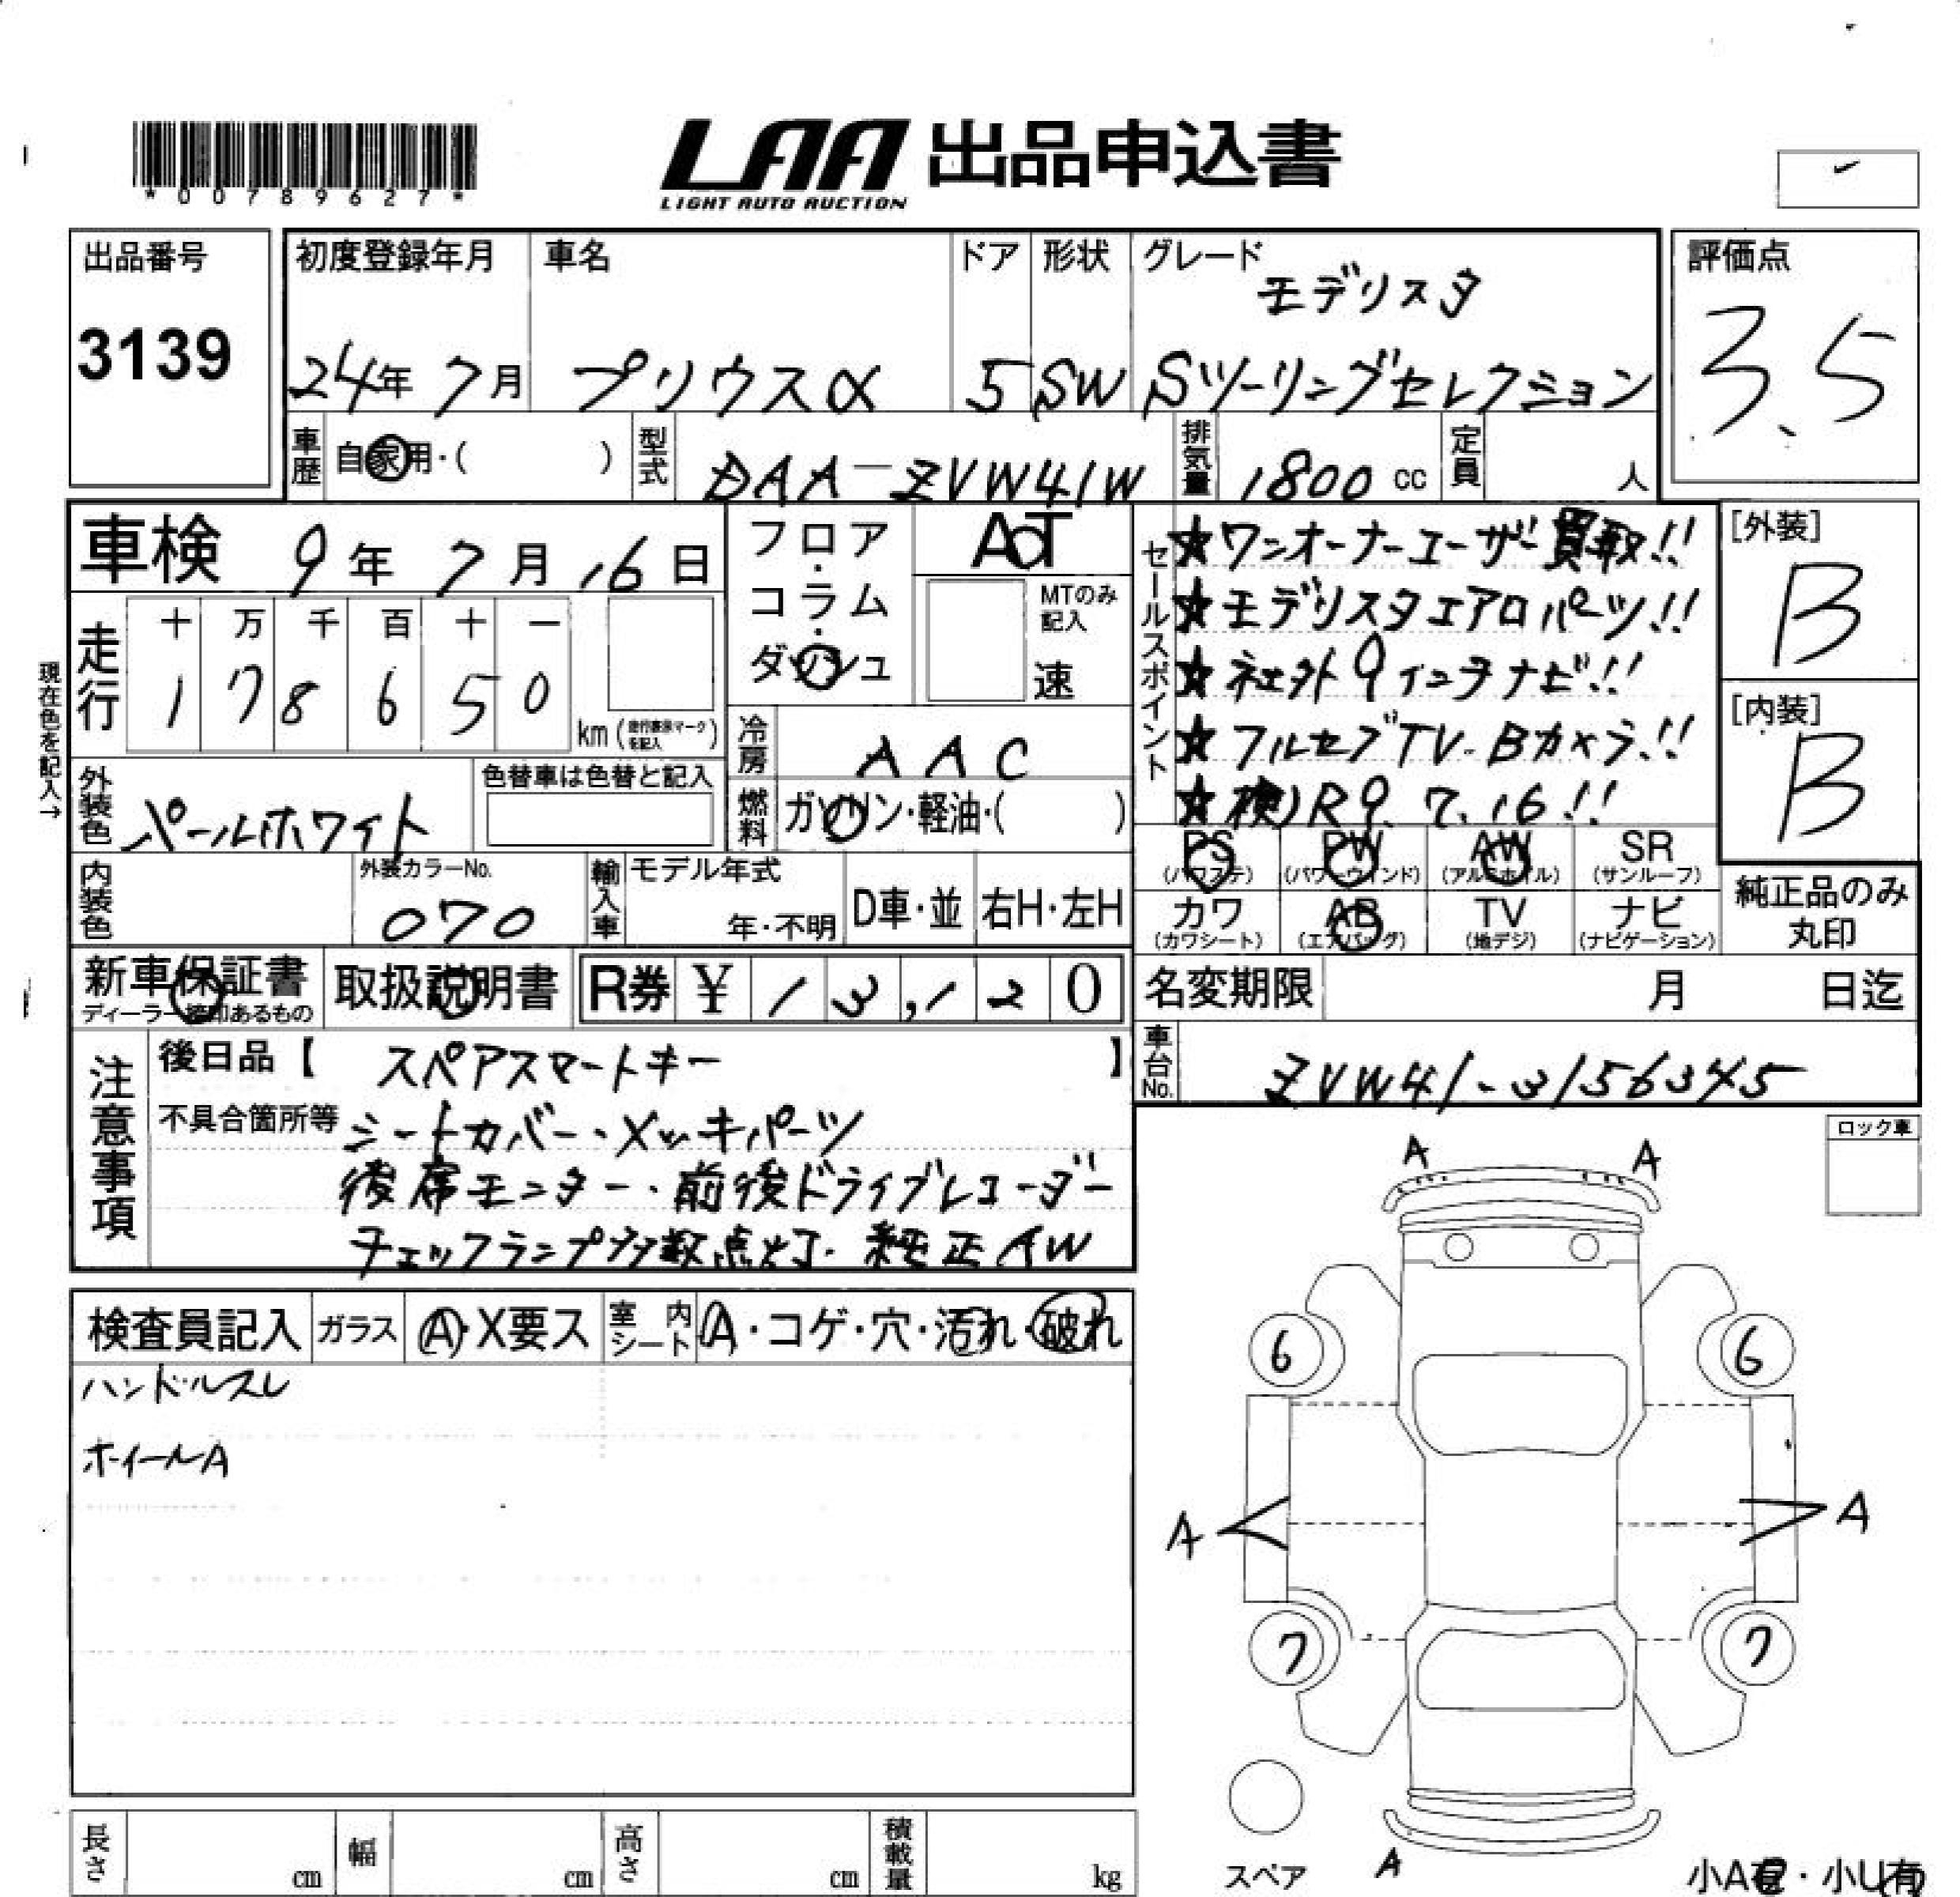 *00789627*
LAA 出品申込書
LIGHT AUTO AUCTION
出品番号
3139
初度登録年月
24年 7月
車名
プリウスα
ドア
5
形状
SW
グレード
モデリスタ
Sツーリングセレクション
評価点
3.5
車歴
自家用・( )
型式
DAA-ZVW41W
排気量
1800 cc
定員
人
車検 9年 7月 16日
走行
十 万 千 百 十 一
1 7 8 6 5 0
km (走行表示マークを記入)
現在色を記入→
フロア・コラム・ダッシュ
AT
MTのみ記入
速
冷房
AAC
燃料
ガソリン・軽油・( )
外装色
パールホワイト
色替車は色替と記入
内装色
外装カラーNo.
070
輸入車
モデル年式
年・不明
D車・並
右H・左H
セールスポイント
★ワンオーナーユーザー買取!!
★モデリスタエアロパーツ!!
★社外9インチナビ!!
★フルセグTV・Bカメラ!!
★検R9.7.16!!
[外装]
B
[内装]
B
PS (パワステ)
PW (パワーウインド)
AW (アルミホイル)
SR (サンルーフ)
カワ (カワシート)
AB (エアバッグ)
TV (地デジ)
ナビ (ナビゲーション)
純正品のみ丸印
新車保証書
ディーラー捺印あるもの
取扱説明書
R券 ¥ 13,120
名変期限 月 日迄
車台No.
ZVW41-3156345
注意事項
後日品【 スペアスマートキー 】
不具合箇所等 シートカバー・メッキパーツ
後席モニター・前後ドライブレコーダー
チェックランプ多数点灯・純正AW
ロック車
検査員記入
ガラス
A・X要ス
室内シート
A・コゲ・穴・汚れ・破れ
ハンドルスレ
ホイールA
A A
6 6
A A
7 7
スペア
A
小A有・小U有
長さ cm
幅 cm
高さ cm
積載量 kg